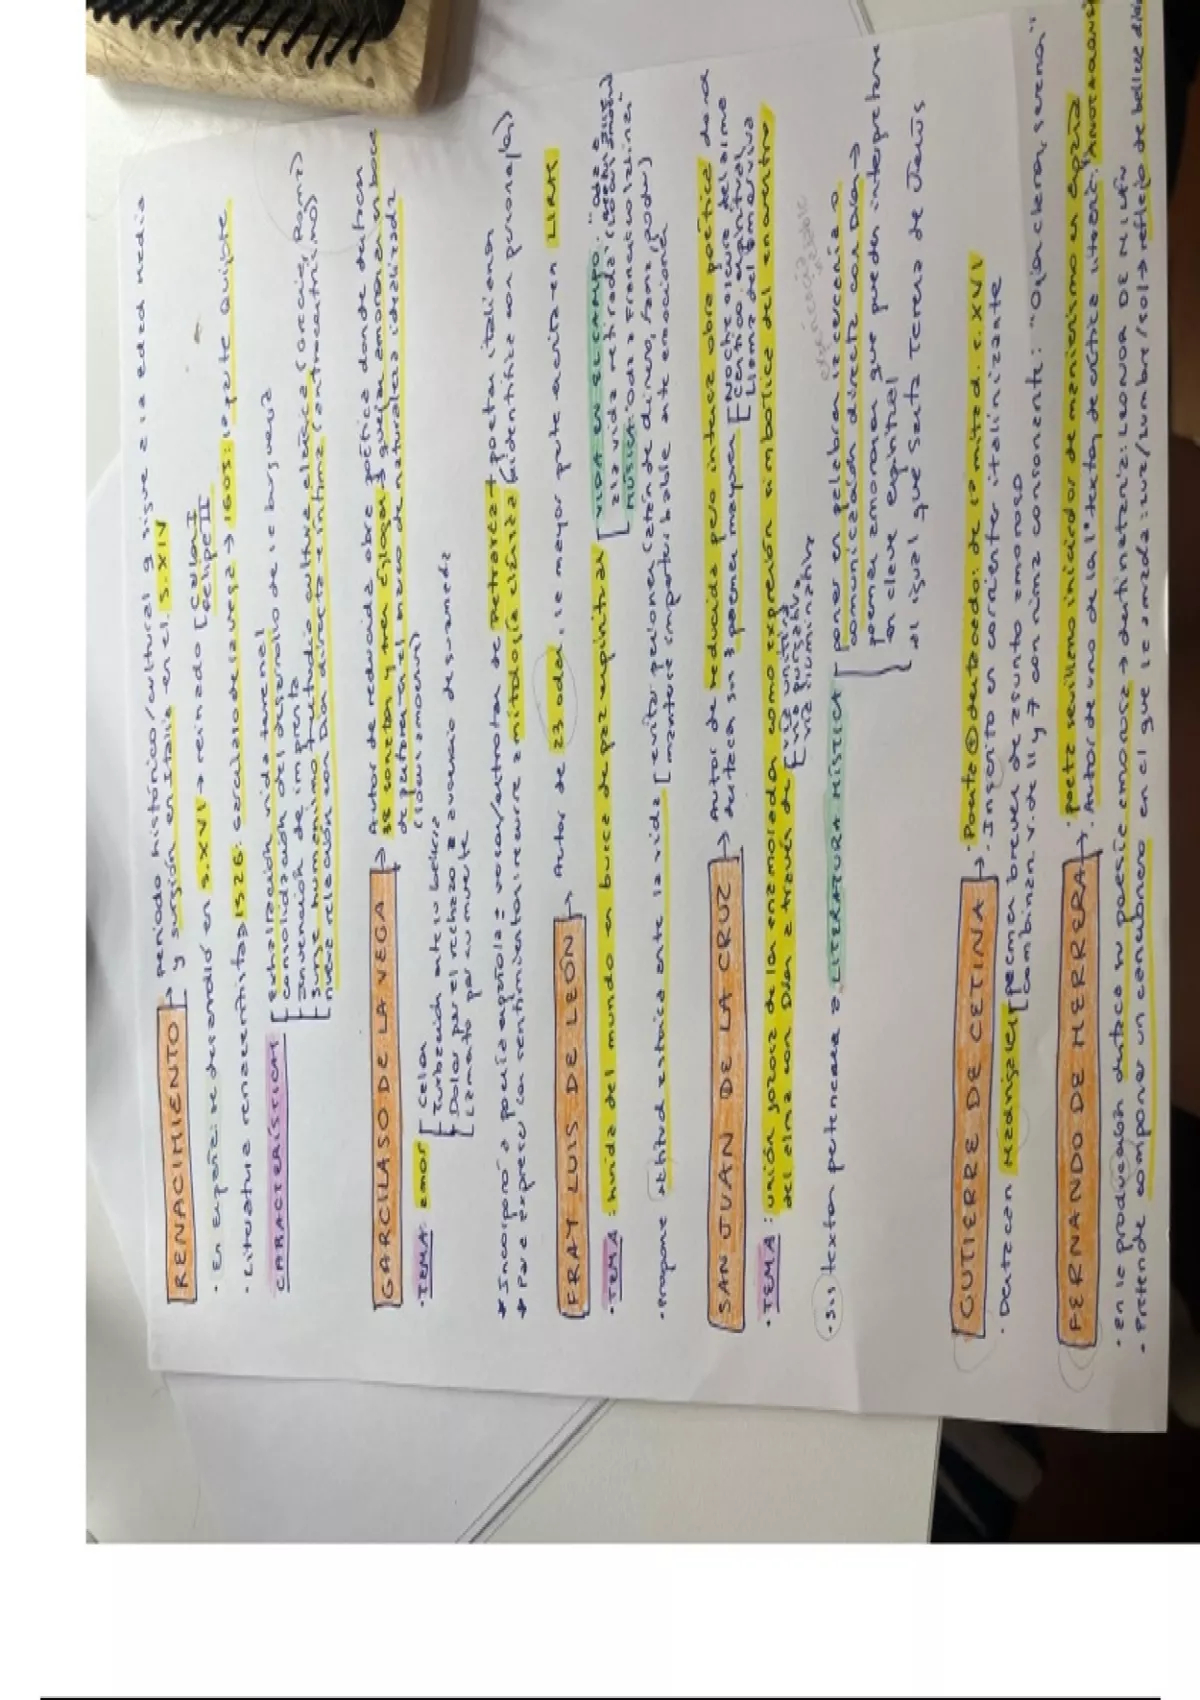 RENACIMIENTO → periodo histórico/cultural q sigue a la edad media
y surgió en Italia en el S.XIV
· En España: se desarrolló en S.XVI → reinado [Carlos I
Felipe II
· Literatura renacentista → 1526: Garcilaso de la Vega → 1605: 1ª parte Quijote
CARACTERÍSTICAS [Exhaltación vida terrenal
consolidación del desarrollo de la burguesía
Invención de imprenta
Surge humanismo [estudio cultura clásica (Grecia y Roma)
nueva relación con Dios directa e íntima (antropocentrismo)
GARCILASO DE LA VEGA → Autor de reducida obra poética donde destacan
38 sonetos y tres églogas] quejas amorosas en boca
de pastores en el marco de naturaleza idealizada
(locus amoenus)
· TEMA: amor [Celos
Turbación ante su belleza
Dolor por el rechazo o ausencia de su amada
Lamento por su muerte
* Incorporó a poesía española = voces/estrofas de Petrarca + poetas italianos
* Para expresar los sentimientos: recurre a mitología clásica (identifica con personajes)
FRAY LUIS DE LEÓN → Autor de 23 odas, la mayor parte escrita en LIRAS
· TEMA: huida del mundo en busca de paz espiritual [VIDA EN EL CAMPO: "Oda a
la vida retirada"
MÚSICA: "Oda a Francisco Salinas"
· Propone actitud estoica ante la vida [evitar pasiones (afán de dinero, fama, poder)
mantenerse imperturbable ante emociones
SAN JUAN DE LA CRUZ → Autor de reducida pero intensa obra poética donde
destacan sus 3 poemas mayores [Noche oscura del alma
Cántico espiritual
Llama de amor viva
· TEMA: unión gozosa de los enamorados como expresión simbólica del encuentro
del alma con Dios a través de [vía unitiva
vía purgativa
vía iluminativa
· Sus textos pertenecen a LITERATURA MÍSTICA [poner en palabras la cercanía o
comunicación directa con Dios →
poemas amorosos que pueden interpretarse
en clave espiritual
al igual que Santa Teresa de Jesús
GUTIERRE DE CETINA → · Poeta destacado: de 1ª mitad s.XVI
· Inserto en corriente italianizante
· Destacan Madrigales [poemas breves de asunto amoroso
combinan v. de 11 y 7 con rima consonante: "Ojos claros, serenos"
FERNANDO DE HERRERA → · poeta sevillano iniciador de manierismo en España
· Autor de uno de los 1º textos de crítica literaria:
· En la producción destaca su poesía amorosa → destinataria: LEONOR DE MILÁN
· Pretende componer un cancionero en el que la amada: luz/lumbre/sol → reflejo de belleza